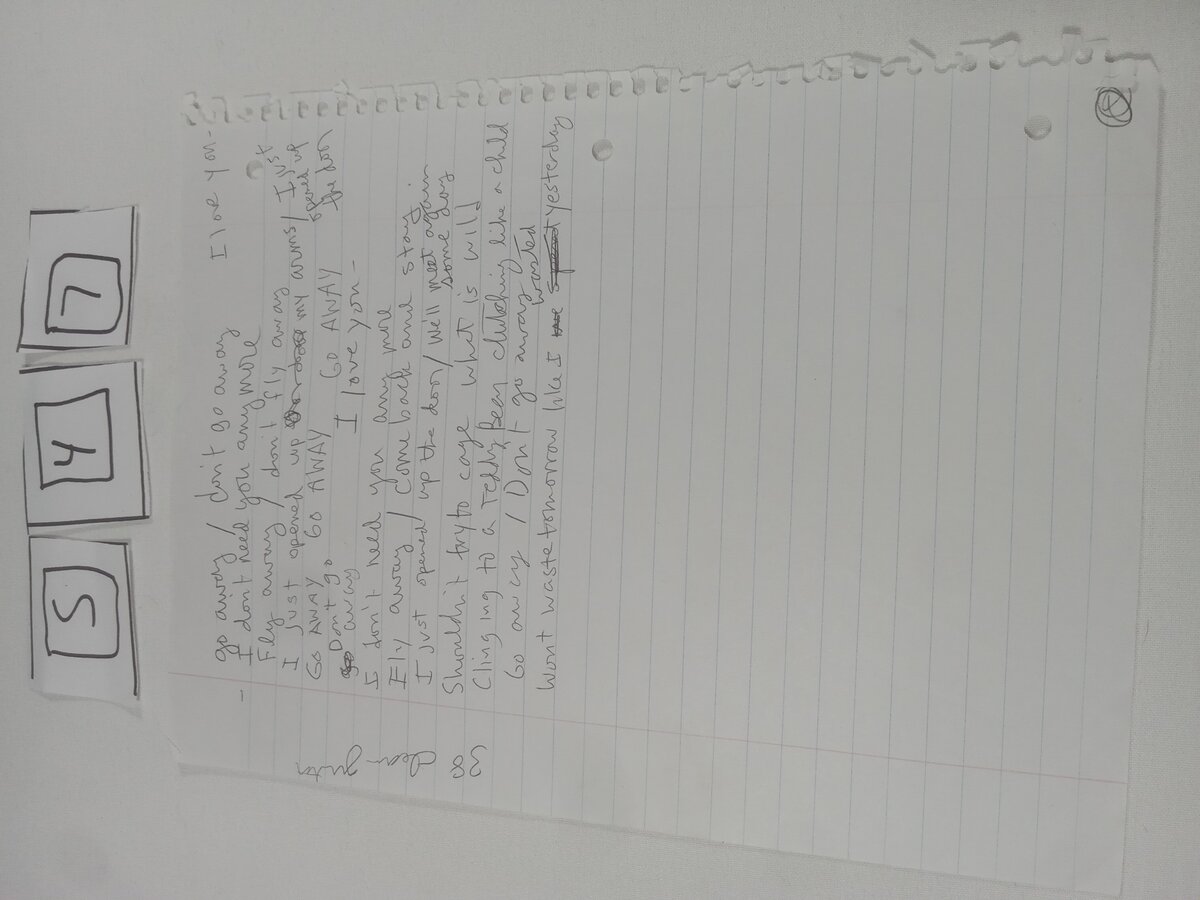 5 4 7
go away / don't go away I love you -
- I don't need you anymore
Fly away / don't fly away
I just opened up my arms / I just opened up the door
GO AWAY GO AWAY GO AWAY
Don't go away I love you -
I don't need you any more
Fly away / come back and stay
I just opened up the door / We'll meet again some day
Shouldn't try to cage what is wild
Clinging to a Teddy Bear, clutching like a child
Go away / Don't go away
Wont waste tomorrow like I wasted yesterday
guitar